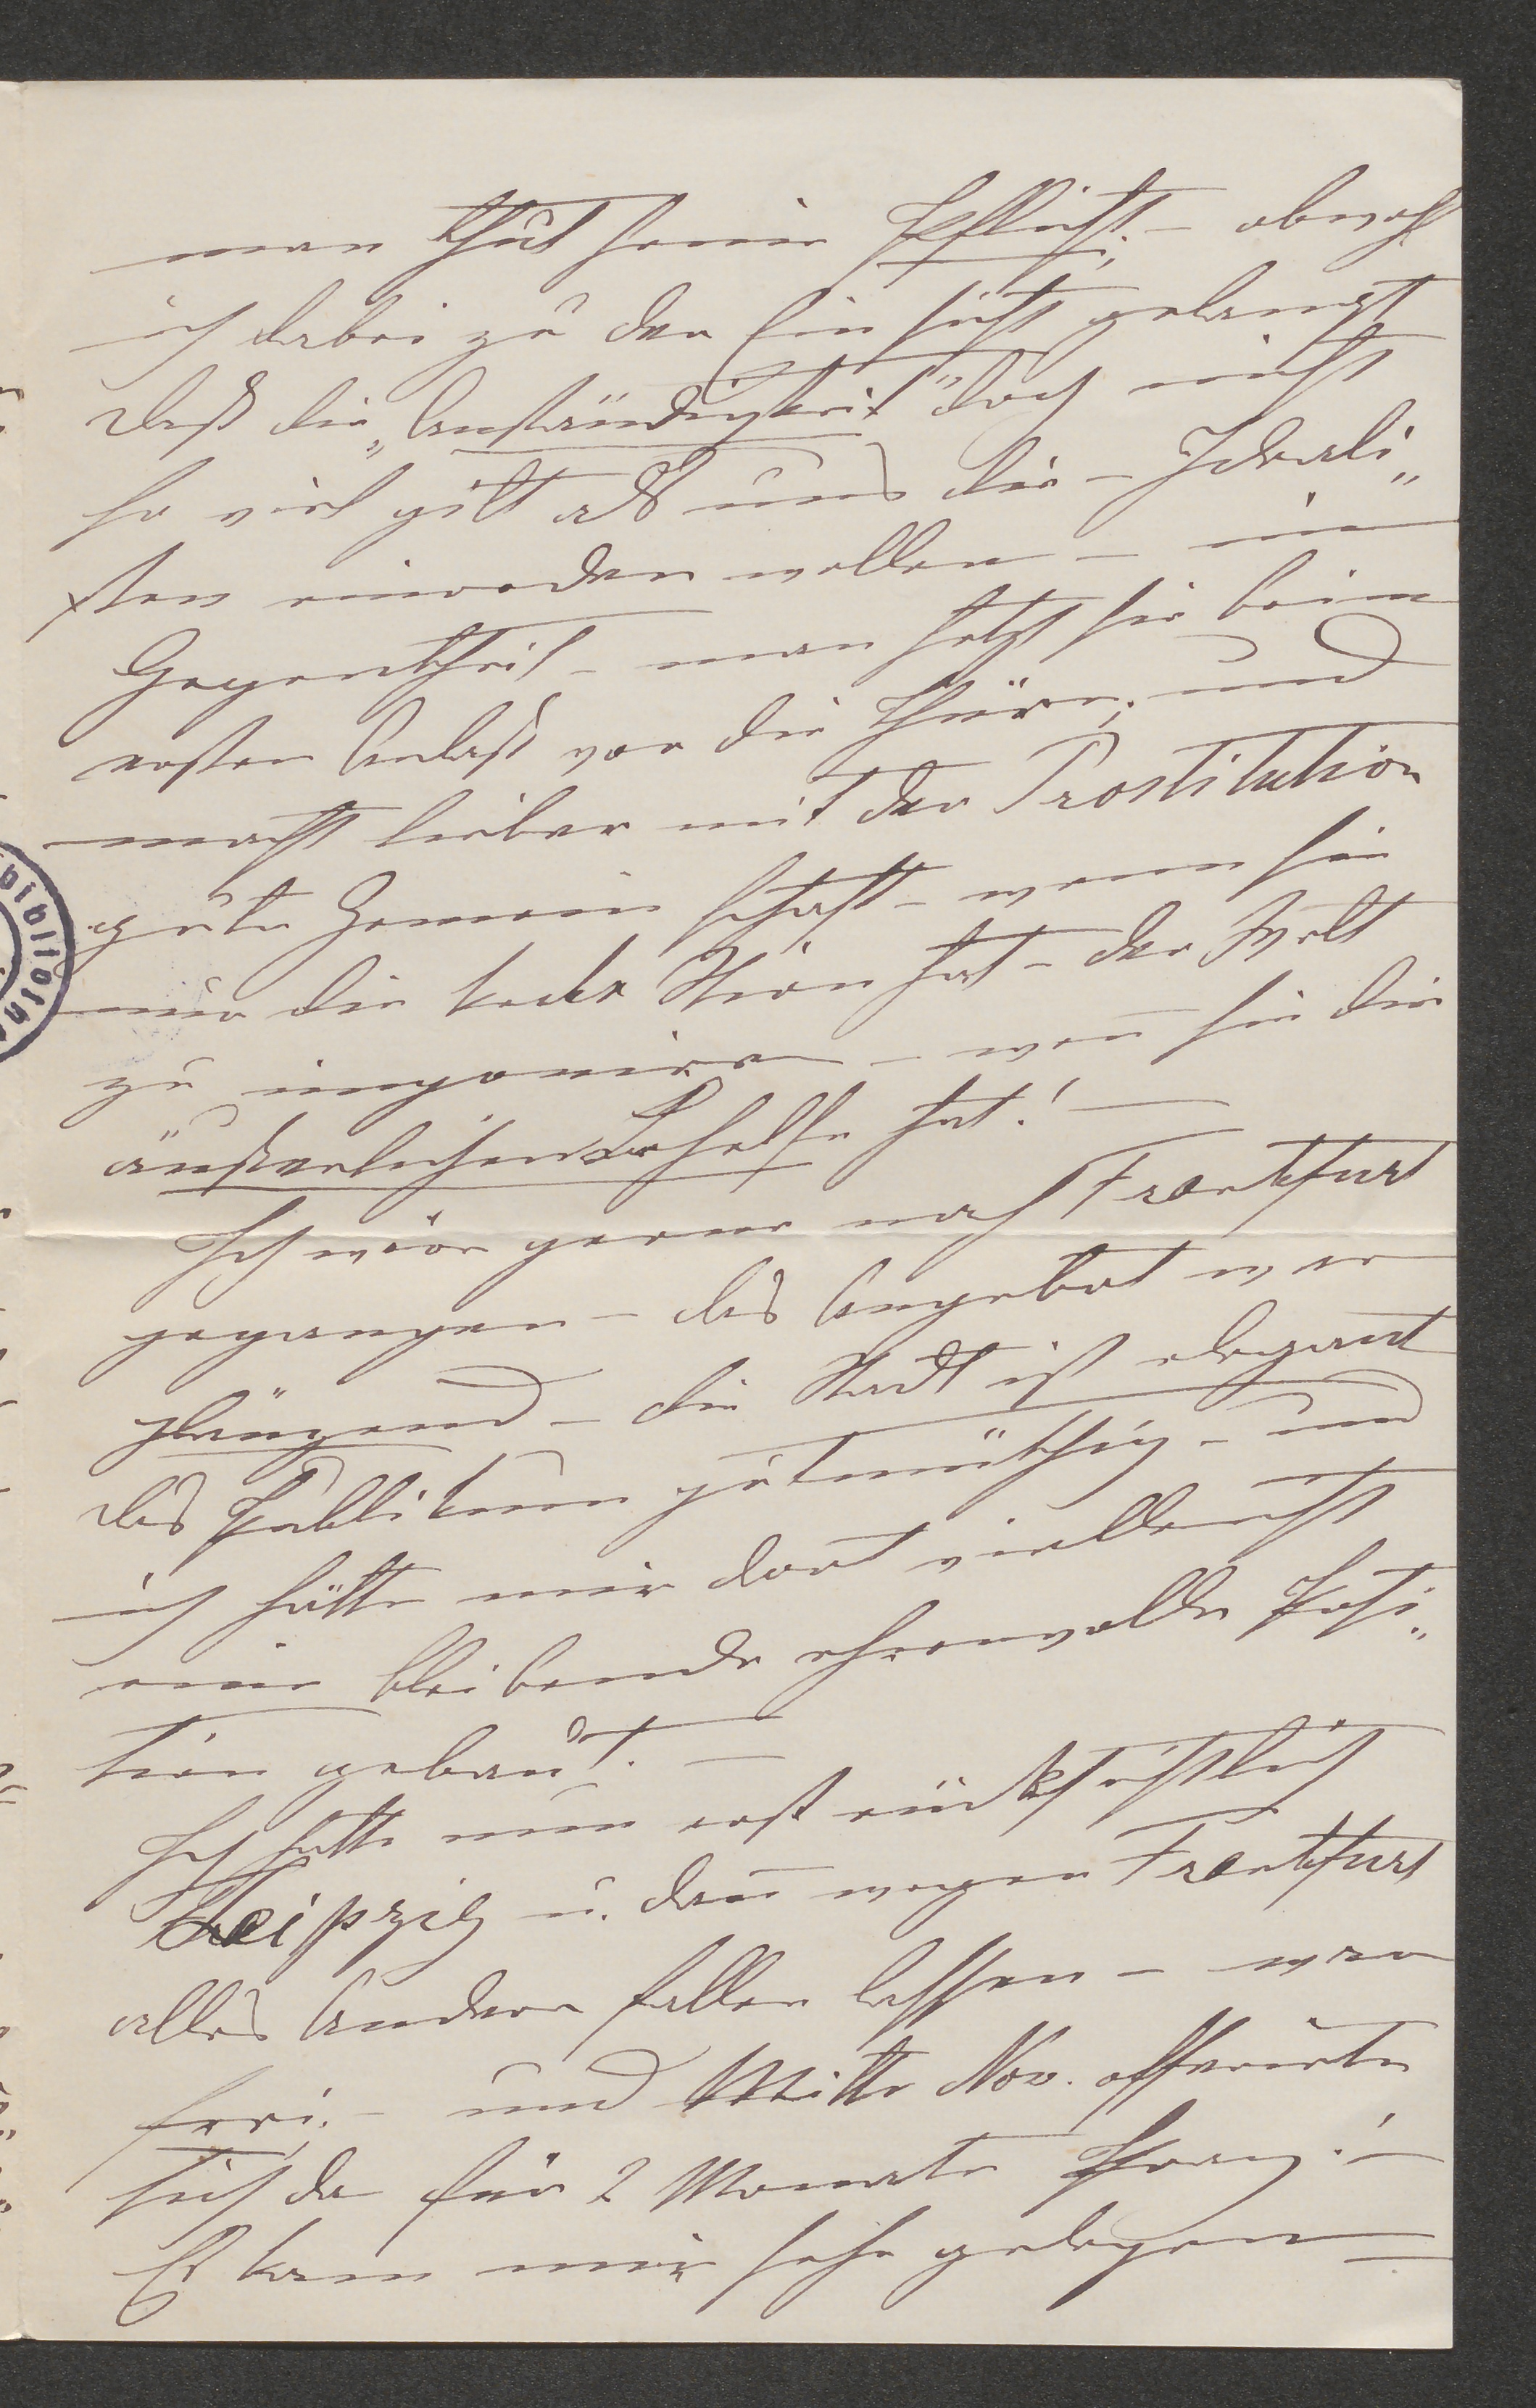 man thut seine Pflicht; – obwohl
ich dabei zu der Einsicht gelangt
daß die „Anständigkeit“ doch nicht
so viel gilt als uns die – Ideali„
sten einreden wollen – im
Gegentheil – man setzt sie beim
ersten Anlaß vor die Thüre; und
macht lieber mit der Prostitution
gute Gemeinschaft – wenn sie
nur die kecke Stirn hat – der Welt
zu imponiren – wen̅ sie die
äußerlichen Behelfe hat! –
Ich wäre gerne nach Frankfurt
gegangen – das Angebot war
glänzend – die Stadt ist elegant
das Publikum gutmüthig – und
ich hätte mir dort vielleicht
eine bleibende ehrenvolle Posi„
tion gebaut. –
Ich hatte nun erst rücksichtlich
Leipzig u. dan̅ wegen Frankfurt
alles Andere fallen lassen – war
frei; – und Mitte Nov. offerirte
sich da für 2 Monate Prag! –
Es kam mir sehr gelegen –
biblioth